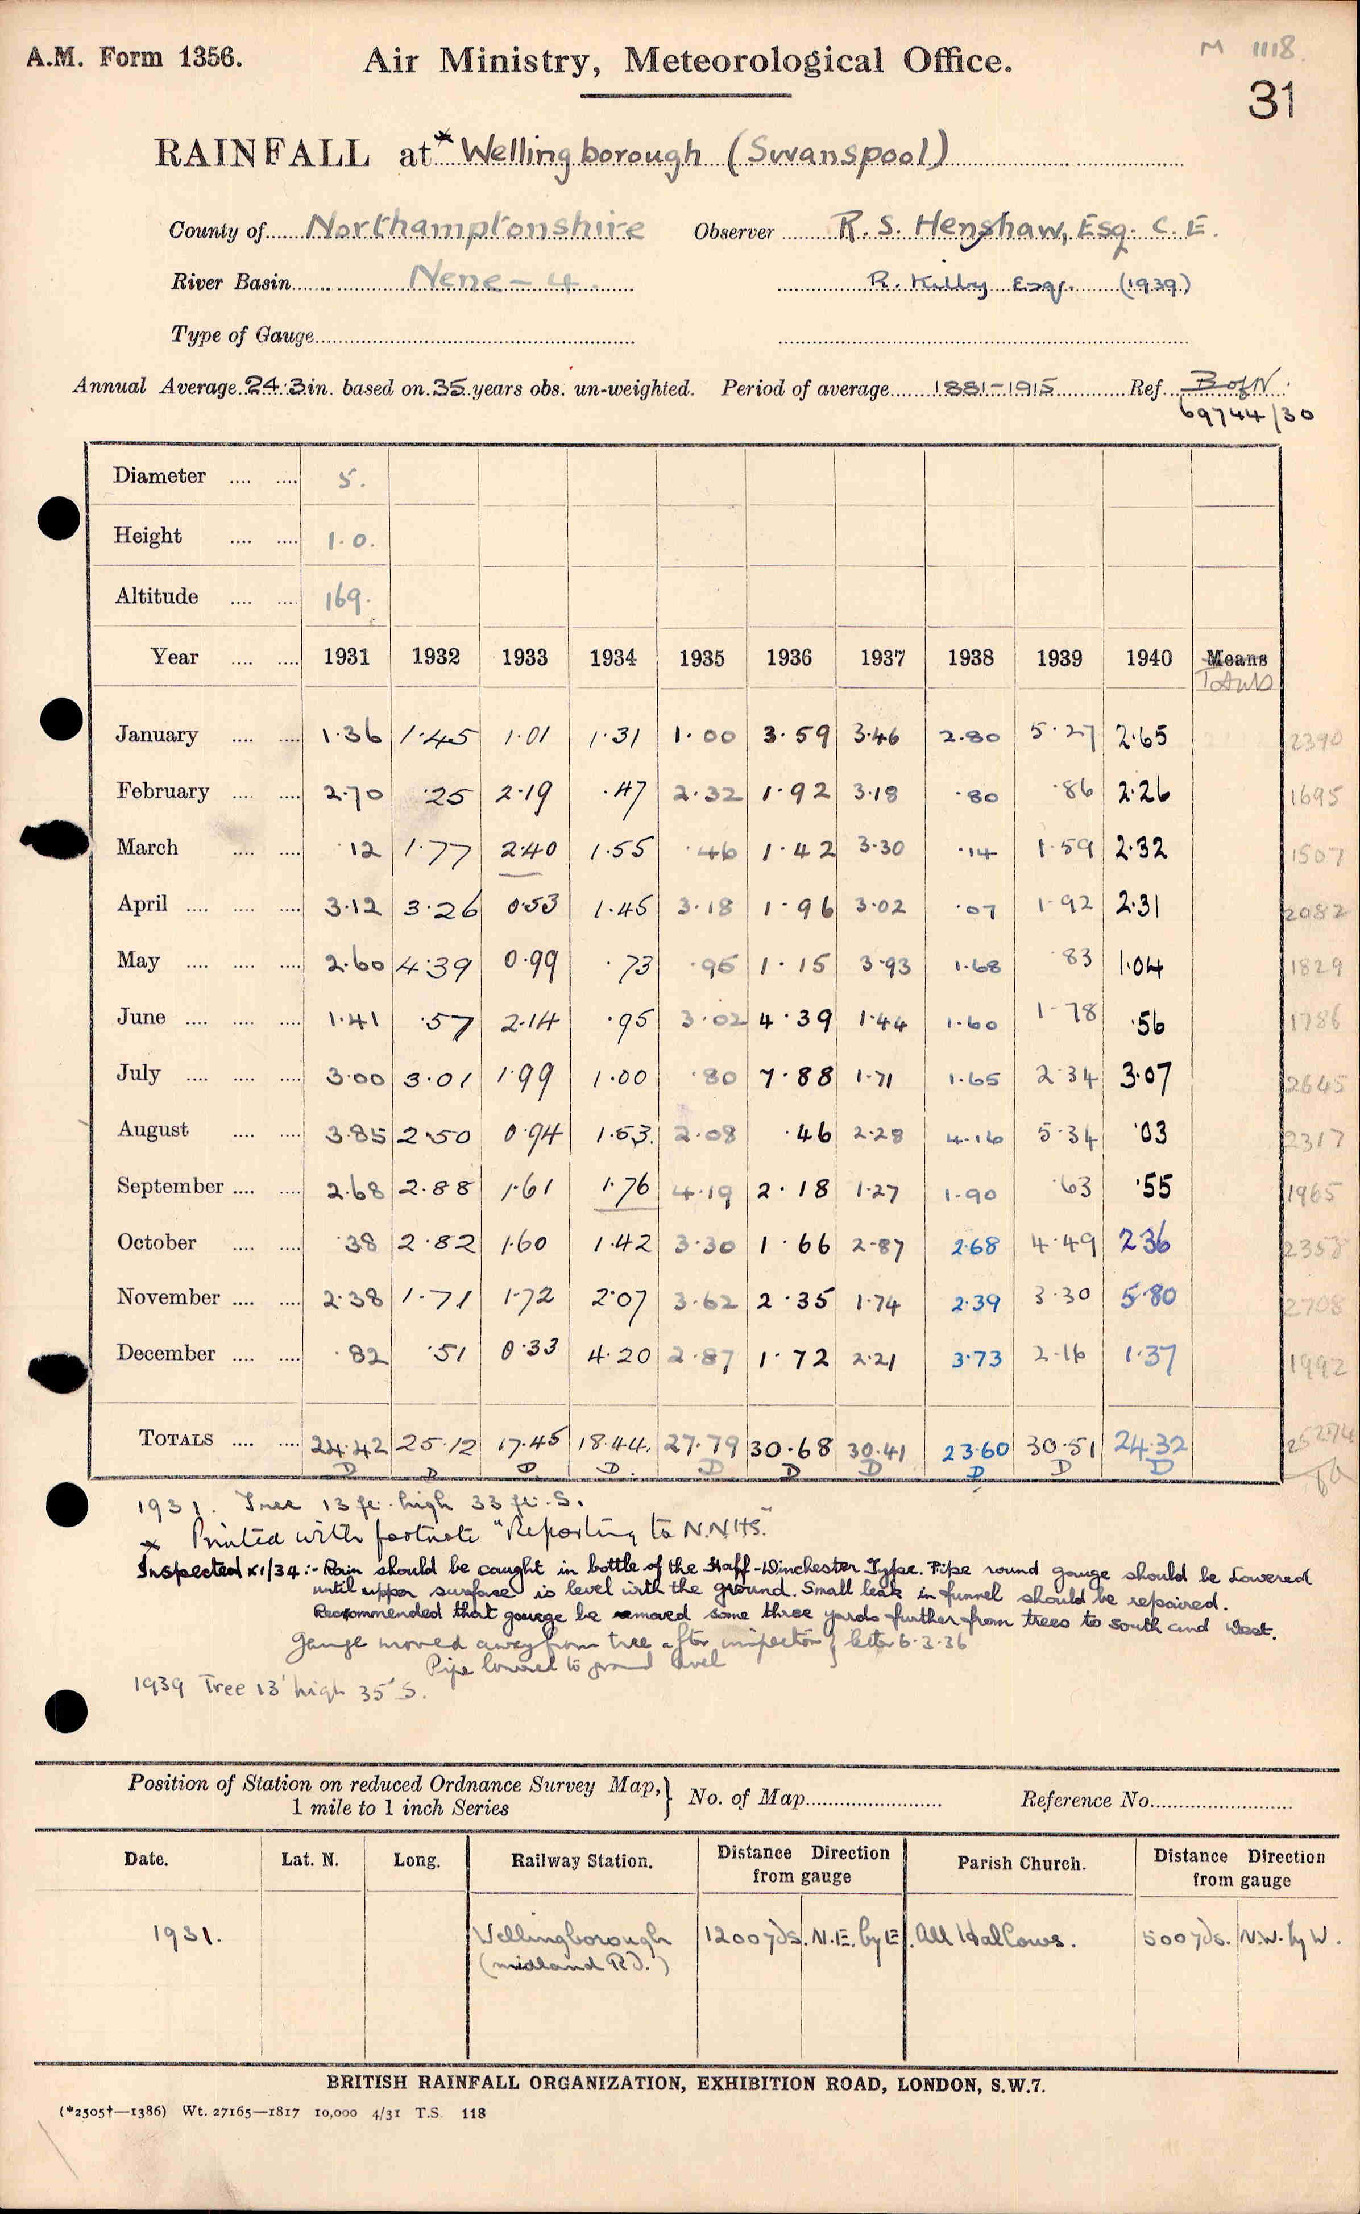 A.M. Form 1356.
Air Ministry, Meteorological Office.
M 1118.
31
RAINFALL at * Wellingborough (Swanspool)
County of Northamptonshire Observer R. S. Henshaw, Esq. C. E.
River Basin Nene - 4. R. Kilby Esq. (1939)
Type of Gauge
Annual Average 24.3 in. based on 35 years obs. un-weighted. Period of average 1881-1915 Ref. B of N
69744/30
Diameter .... .... 5.
Height .... .... 1.0.
Altitude .... .... 169.
Year .... .... 1931 1932 1933 1934 1935 1936 1937 1938 1939 1940 Means
Totals
January .... .... 1.36 1.45 1.01 1.31 1.00 3.59 3.46 2.80 5.27 2.65 2390
February .... .... 2.70 .25 2.19 .47 2.32 1.92 3.18 .80 .86 2.26 1695
March .... .... .12 1.77 2.40 1.55 .46 1.42 3.30 .14 1.59 2.32 1507
April .... .... .... 3.12 3.26 0.53 1.45 3.18 1.96 3.02 .07 1.92 2.31 2082
May .... .... .... 2.60 4.39 0.99 .73 .95 1.15 3.93 1.68 .83 1.04 1829
June .... .... .... 1.41 .57 2.14 .95 3.02 4.39 1.44 1.60 1.78 .56 1786
July .... .... .... 3.00 3.01 1.99 1.00 .80 7.88 1.71 1.65 2.34 3.07 2645
August .... .... 3.85 2.50 0.94 1.53 2.08 .46 2.28 4.16 5.34 .03 2317
September .... .... 2.68 2.88 1.61 1.76 4.19 2.18 1.27 1.90 .63 .55 1965
October .... .... .38 2.82 1.60 1.42 3.30 1.66 2.87 2.68 4.49 2.36 2358
November .... .... 2.38 1.71 1.72 2.07 3.62 2.35 1.74 2.39 3.30 5.80 2708
December .... .... .82 .51 0.33 4.20 2.87 1.72 2.21 3.73 2.16 1.37 1992
TOTALS .... .... 24.42 25.12 17.45 18.44 27.79 30.68 30.41 23.60 30.51 24.32 25274
D D D D D D D D D D
1931. Tree 13 ft. high 33 ft. S.
* Printed with footnote "Reporting to N.N.H.S."
Inspected XI/34 :- Rain should be caught in bottle of the Staff-Winchester Type. Pipe round gauge should be lowered
until upper surface is level with the ground. Small leak in funnel should be repaired.
Recommended that gauge be removed some three yards further from trees to south and West.
Gauge moved away from tree after inspection } letter 6.3.36
Pipe lowered to ground level
1939 Tree 13' high 35' S.
Position of Station on reduced Ordnance Survey Map, } No. of Map Reference No.
1 mile to 1 inch Series
Date. Lat. N. Long. Railway Station. Distance Direction from gauge Parish Church. Distance Direction from gauge
1931. Wellingborough 1200 yds. N.E. by E. All Hallows. 500 yds. N.W. by W.
(Midland Rd.)
BRITISH RAINFALL ORGANIZATION, EXHIBITION ROAD, LONDON, S.W.7.
(*2505†—1386) Wt. 27165—1817 10,000 4/31 T.S. 118